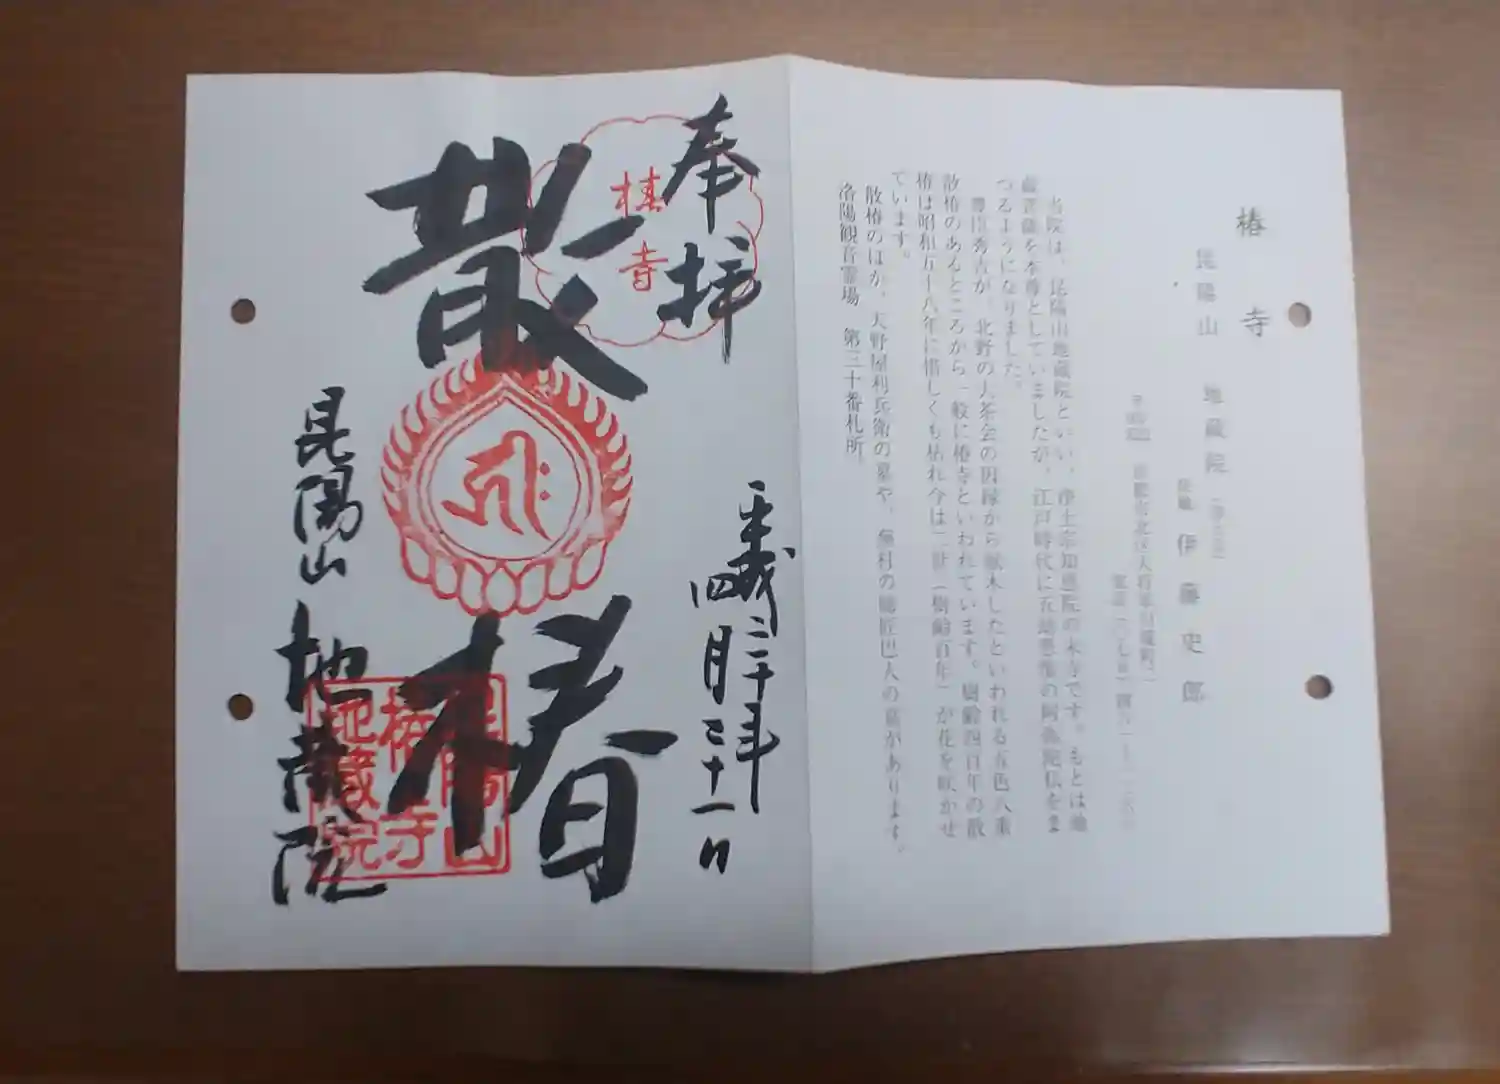 椿寺
昆陽山 地蔵院 (浄土宗)
住職 伊藤史郎
京都市北区大将軍川端町二
当院は、昆陽山地蔵院といい、浄土宗知恩院の末寺です。もとは地
蔵菩薩を本尊としていましたが、江戸時代に五劫思惟の阿弥陀仏をま
つるようになりました。
豊臣秀吉が、北野の大茶会の因縁から献木したといわれる五色八重
散椿のあるところから一般に椿寺といわれています。樹齢四百年の散
椿は昭和五十八年に惜しくも枯れ今は二世(樹齢百年)が花を咲かせ
ています。
散椿のほか、天野屋利兵衛の墓や、蕪村の師匠巴人の墓があります。
洛陽観音霊場 第三十番札所。
奉拝
平成二十年
四月二十一日
椿寺
散椿
昆陽山 地蔵院
昆陽山
椿寺
地蔵院